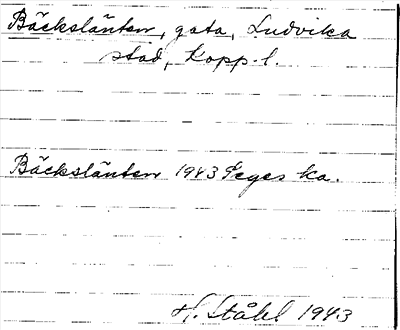 Bäckslänten, gata, Ludvika
stad, Kopp. l.
Bäckslänten 1943 Feges ka.
H. Ståhl 1943